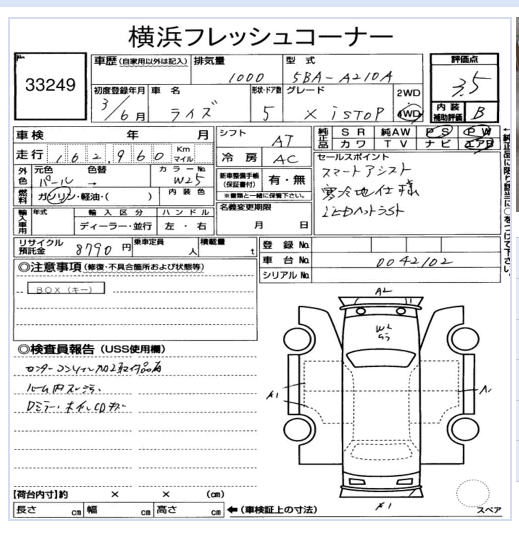 横浜フレッシュコーナー
33249
車歴(自家用以外は記入)
排気量
1000
型 式
5BA-A210A
評価点
3.5
初度登録年月
3/6月
車 名
ライズ
形状・ドア数
5
グレード
X iSTOP
2WD
4WD
内 装
補助評価
B
車検 年 月
シフト
AT
純正品
SR 純AW PS PW
カワ TV ナビ エアB
走行
162,960
Km
マイル
冷 房
AC
セールスポイント
スマートアシスト
寒冷地仕様
LEDヘッドライト
外色
元色
色替
パール →
カラーNo.
W25
新車整備手帳
(保証書付)
有・無
※書類と一緒に保管下さい。
燃料
ガソリン・軽油・( )
内 装 色
名義変更期限
月 日
輸入車用
年式
輸 入 区 分
ディーラー・並行
ハ ン ド ル
左 ・ 右
←純正品に限り該当に○をつけて下さい。
リサイクル預託金
8790 円
乗車定員
人
積載量
t
登 録 No.
車 台 No.
0042102
シリアル No.
◎注意事項(修復・不具合箇所および状態等)
BOX(キー)
◎検査員報告(USS使用欄)
A2
W2
A1
A1
A1
【荷台内寸】約 × × (cm)
長さ cm 幅 cm 高さ cm
←(車検証上の寸法)
スペア